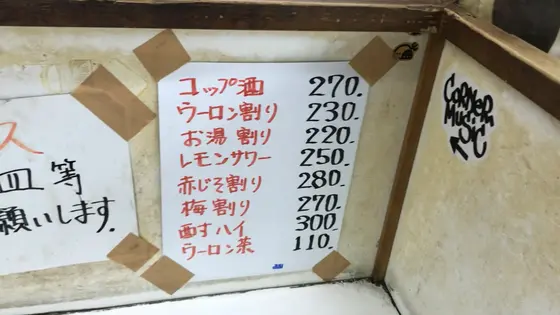 ス
皿 等
願いします.
コップ酒 270.
ウーロン割り 230.
お湯 割り 220.
レモンサワー 250.
赤じそ割り 280.
梅割り 270.
酎ハイ 300.
ウーロン茶 110.